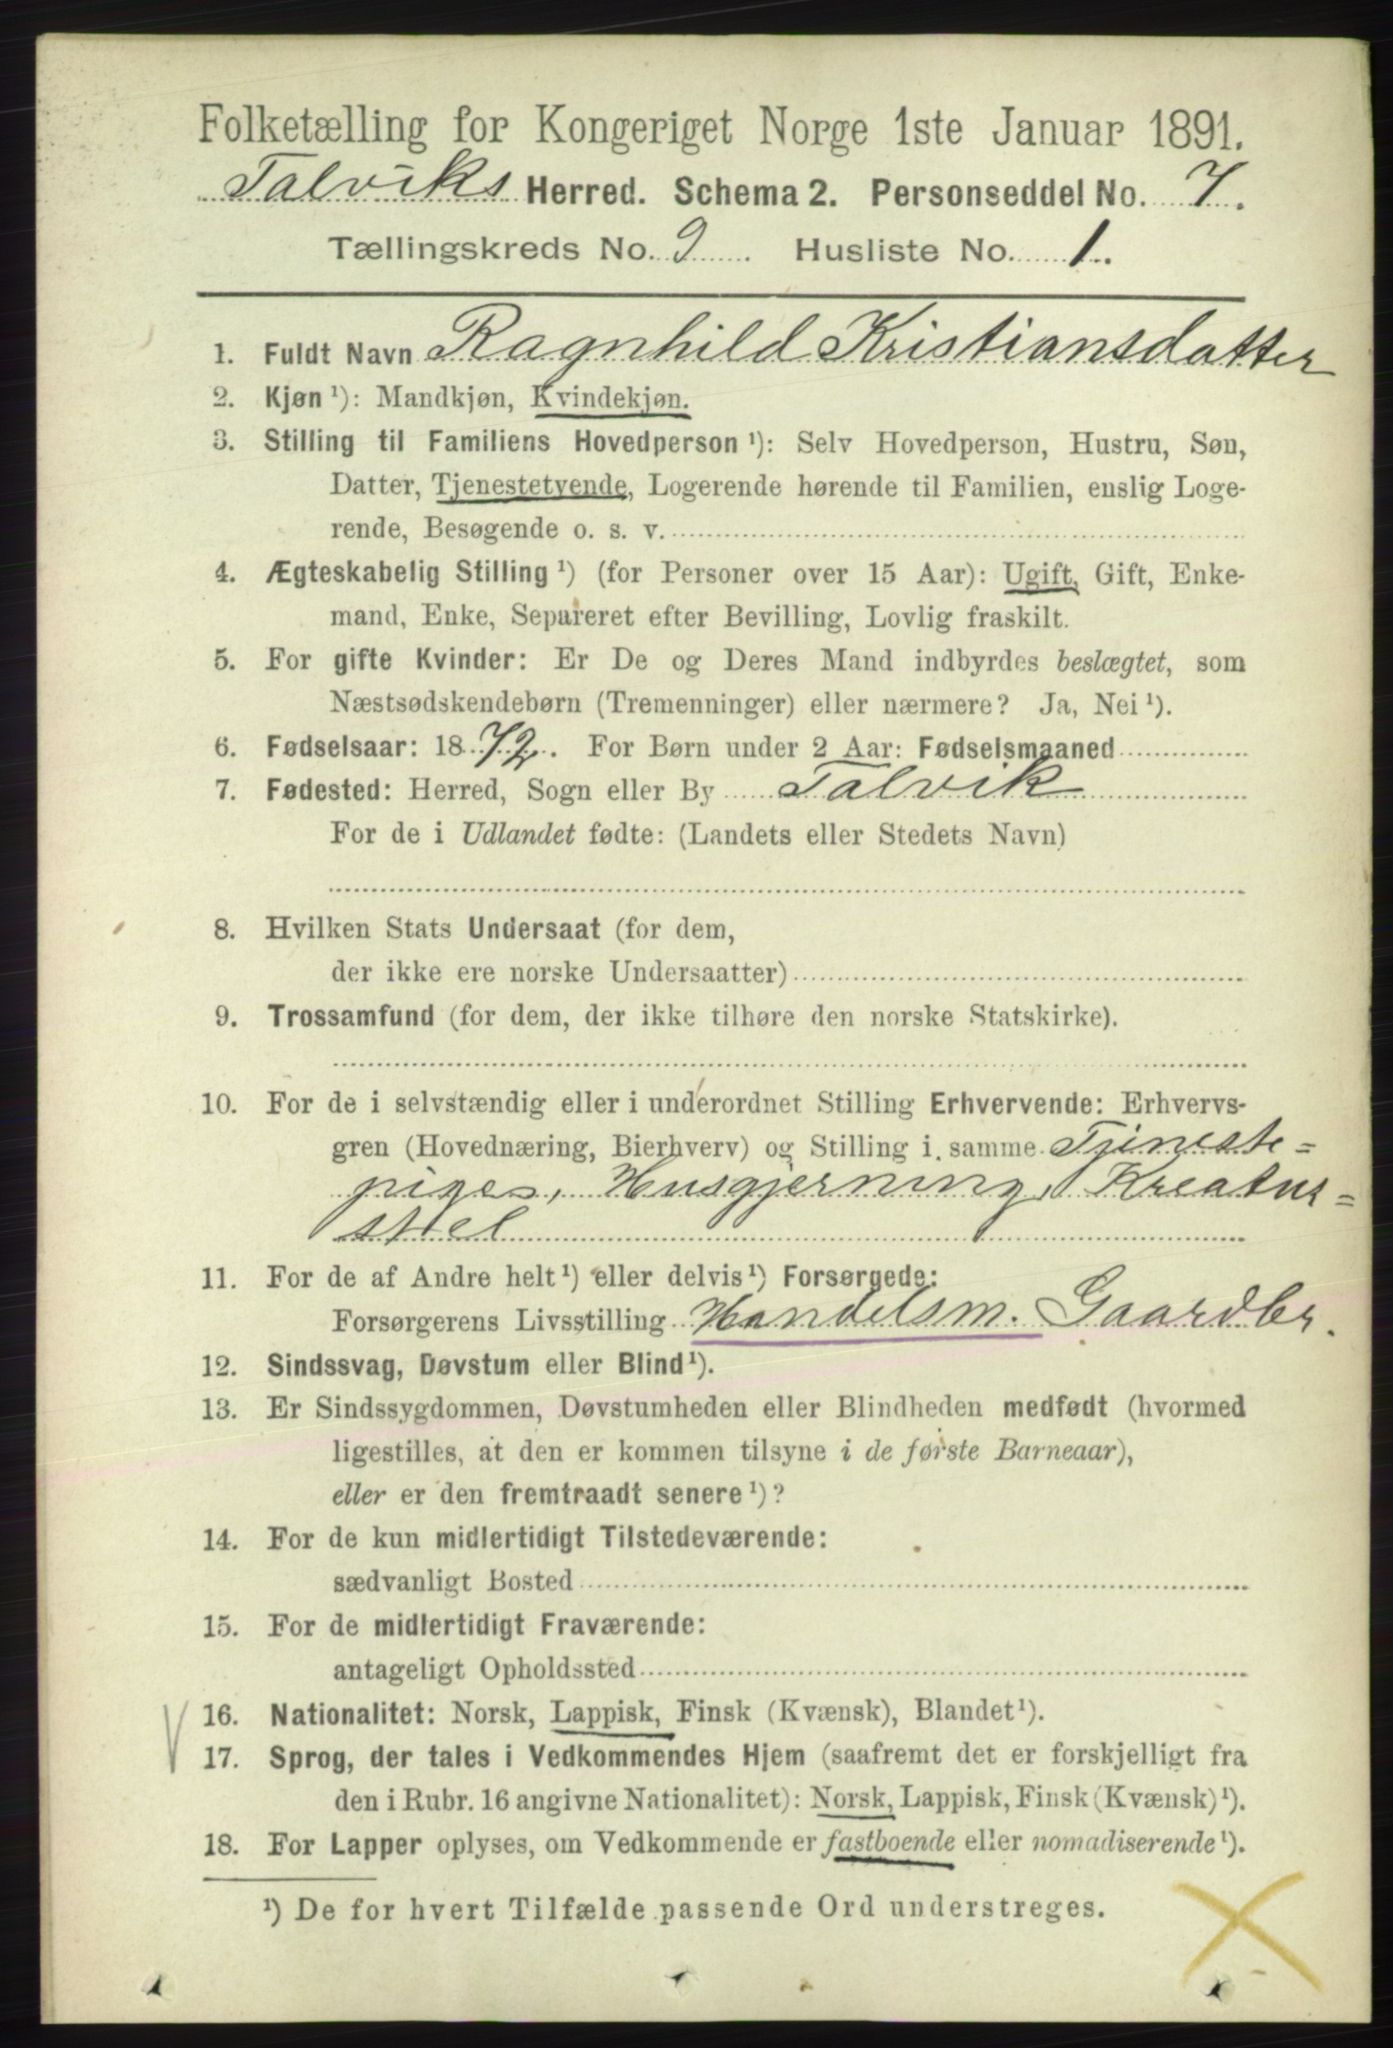 Folketælling for Kongeriget Norge 1ste Januar 1891.
Talviks Herred. Schema 2. Personseddel No. 7.
Tællingskreds No. 9. Husliste No. 1.
1. Fuldt Navn Ragnhild Kristiansdatter
2. Kjøn ¹): Mandkjøn, Kvindekjøn.
3. Stilling til Familiens Hovedperson ¹): Selv Hovedperson, Hustru, Søn,
Datter, Tjenestetyende, Logerende hørende til Familien, enslig Loge-
rende, Besøgende o. s. v.
4. Ægteskabelig Stilling ¹) (for Personer over 15 Aar): Ugift, Gift, Enke-
mand, Enke, Separeret efter Bevilling, Lovlig fraskilt.
5. For gifte Kvinder: Er De og Deres Mand indbyrdes beslægtet, som
Næstsødskendebørn (Tremenninger) eller nærmere? Ja, Nei ¹).
6. Fødselsaar: 1872. For Børn under 2 Aar: Fødselsmaaned
7. Fødested: Herred, Sogn eller By Talvik
For de i Udlandet fødte: (Landets eller Stedets Navn)
8. Hvilken Stats Undersaat (for dem,
der ikke ere norske Undersaatter)
9. Trossamfund (for dem, der ikke tilhøre den norske Statskirke).
10. For de i selvstændig eller i underordnet Stilling Erhvervende: Erhvervs-
gren (Hovednæring, Bierhverv) og Stilling i samme Tjineste=
piges, Husgjerning, Kreatur=
stel
11. For de af Andre helt ¹) eller delvis ¹) Forsørgede:
Forsørgerens Livsstilling Handelsm. Gaardbr.
12. Sindssvag, Døvstum eller Blind ¹).
13. Er Sindssygdommen, Døvstumheden eller Blindheden medfødt (hvormed
ligestilles, at den er kommen tilsyne i de første Barneaar),
eller er den fremtraadt senere ¹)?
14. For de kun midlertidigt Tilstedeværende:
sædvanligt Bosted
15. For de midlertidigt Fraværende:
antageligt Opholdssted
16. Nationalitet: Norsk, Lappisk, Finsk (Kvænsk), Blandet ¹).
17. Sprog, der tales i Vedkommendes Hjem (saafremt det er forskjelligt fra
den i Rubr. 16 angivne Nationalitet): Norsk, Lappisk, Finsk (Kvænsk) ¹).
18. For Lapper oplyses, om Vedkommende er fastboende eller nomadiserende ¹).
¹) De for hvert Tilfælde passende Ord understreges.